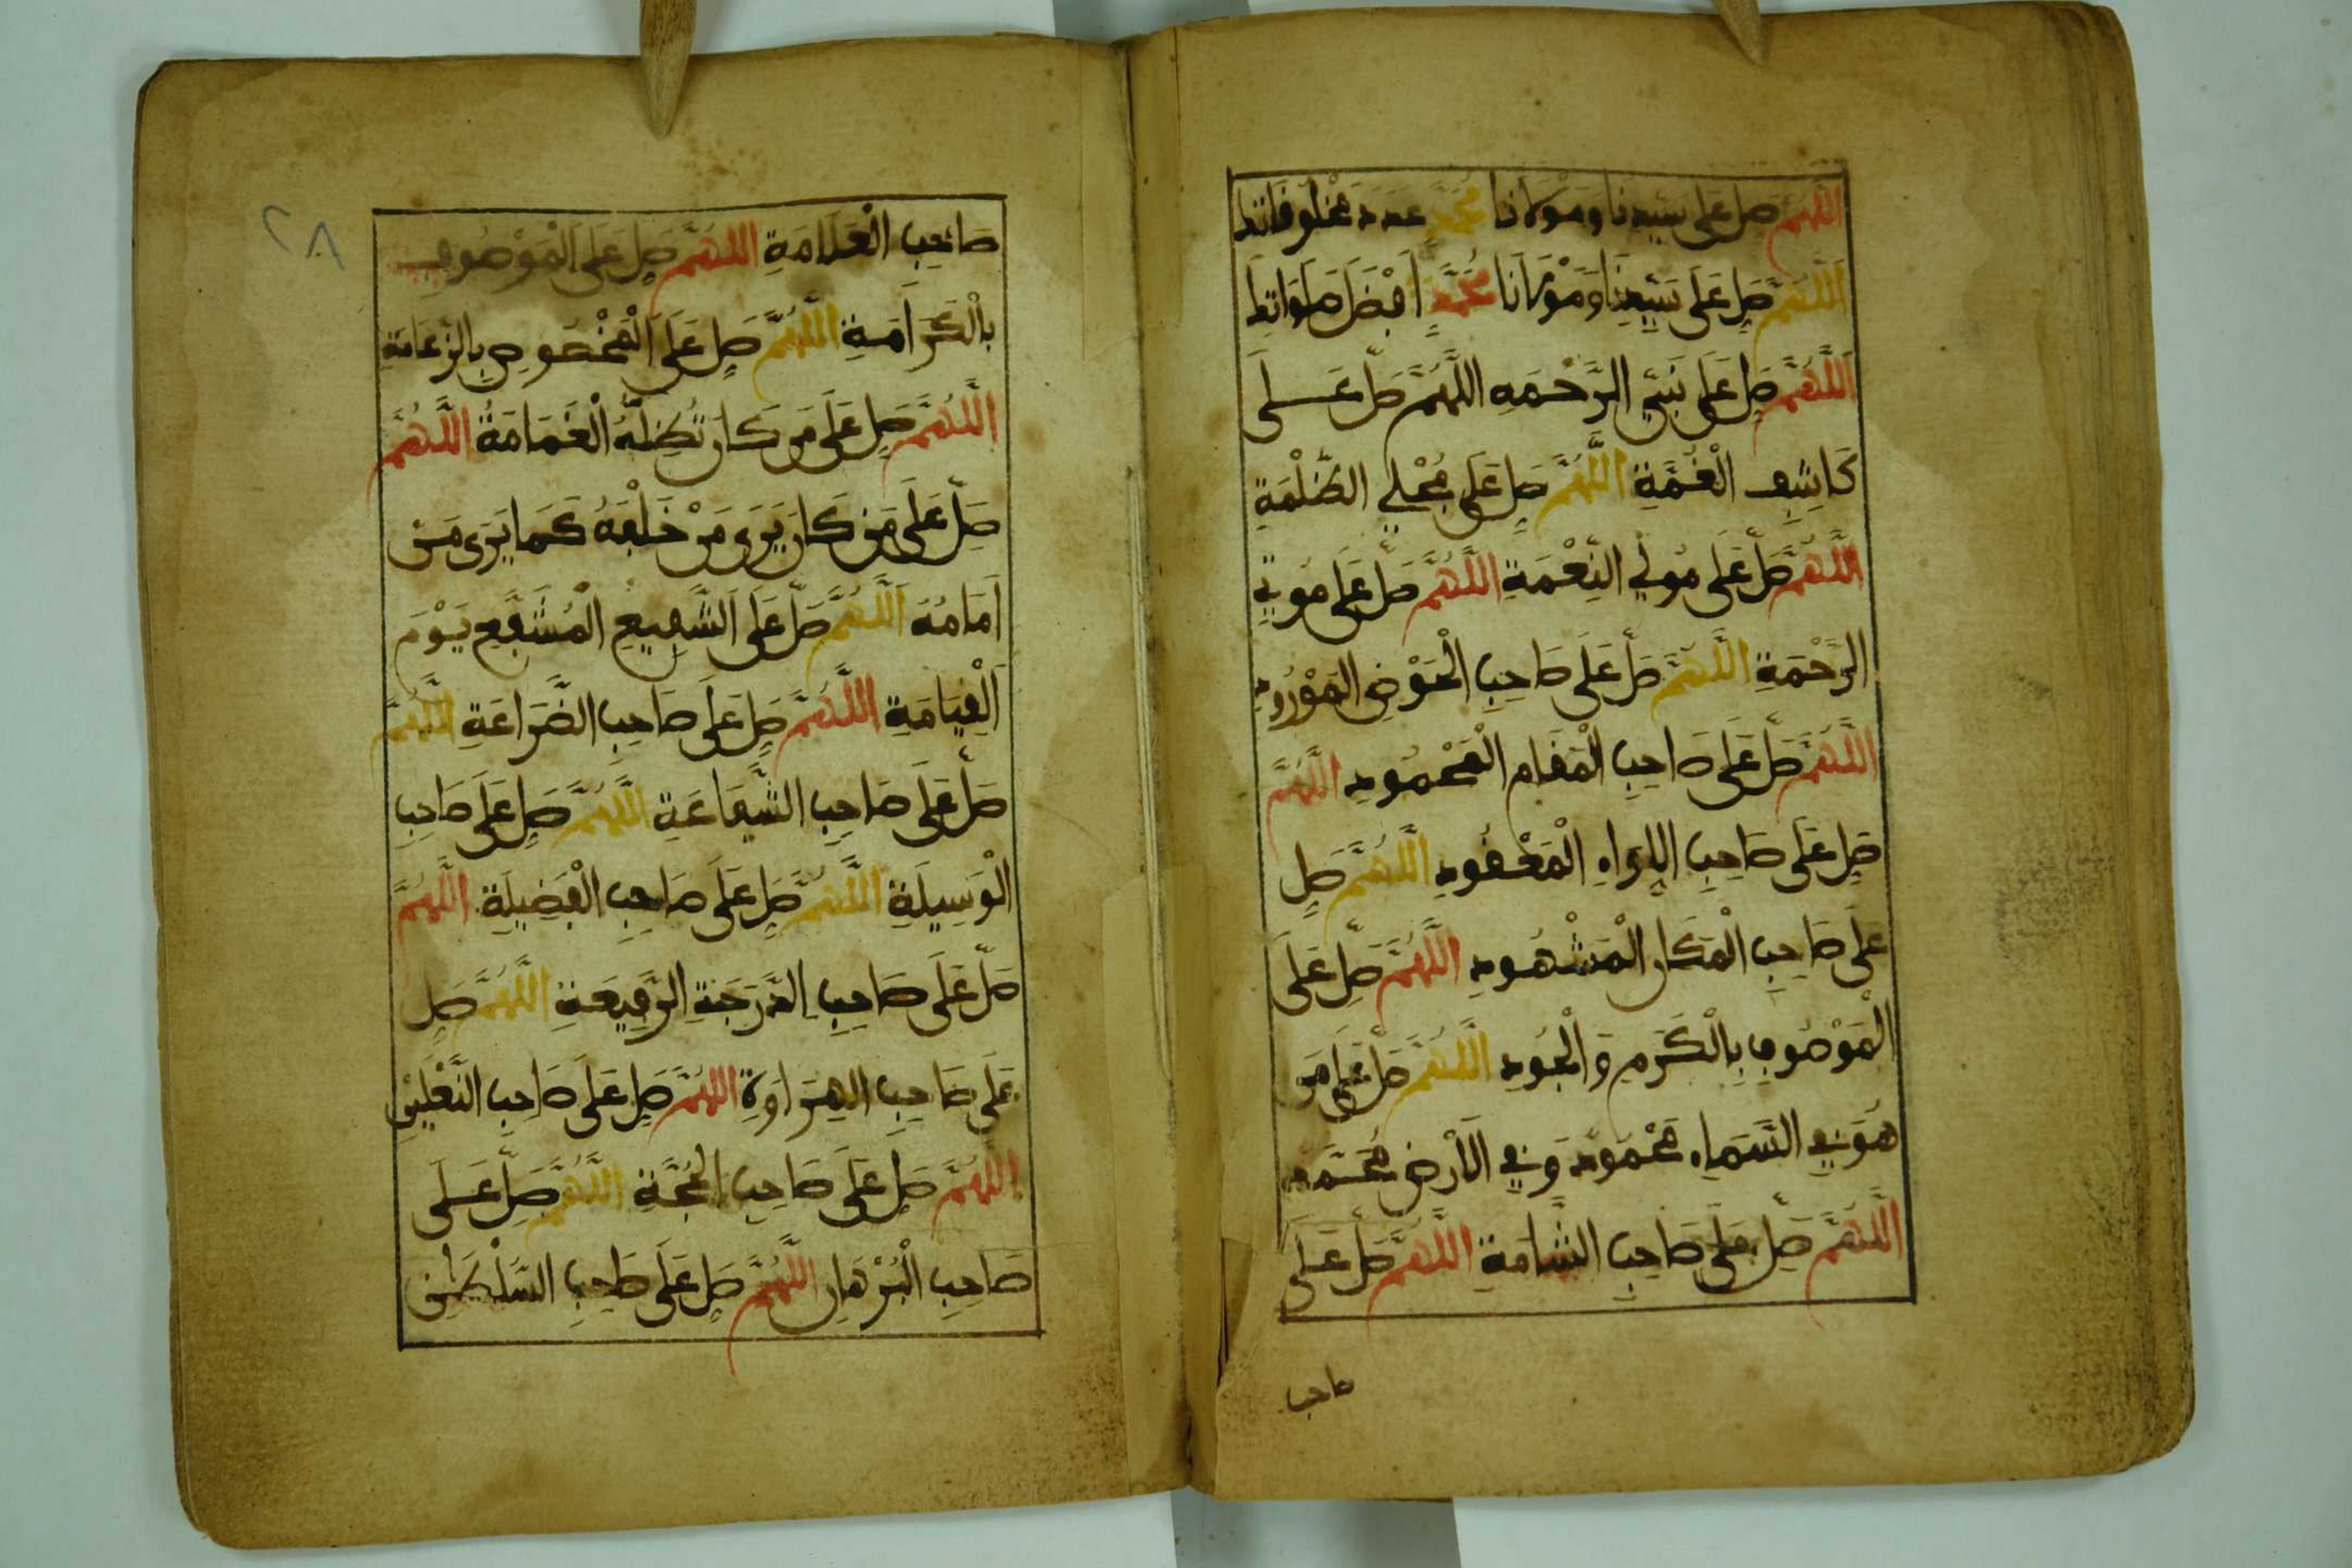 اللهم صل على سيدنا ومولانا محمد عدد مخلوقاتك
اَللَّهُمَّ صَلِّ عَلَى سَيِّدِنَا وَمَوْلَانَا مُحَمَّدٍ أَفْضَلَ صَلَوَاتِكَ
اَللَّهُمَّ صَلِّ عَلَى نَبِيِّ الرَّحْمَةِ اللَّهُمَّ صَلِّ عَلَى
كَاشِفِ الْغُمَّةِ اللَّهُمَّ صَلِّ عَلَى مُجْلِي الظُّلْمَةِ
اللَّهُمَّ صَلِّ عَلَى مُولِي النِّعْمَةِ اللَّهُمَّ صَلِّ عَلَى مُوتِي
الرَّحْمَةِ اللَّهُمَّ صَلِّ عَلَى صَاحِبِ الْحَوْضِ الْمَوْرُودِ
اللَّهُمَّ صَلِّ عَلَى صَاحِبِ الْمَقَامِ الْمَحْمُودِ اللَّهُمَّ
صَلِّ عَلَى صَاحِبِ اللِّوَاءِ الْمَعْقُودِ اللَّهُمَّ صَلِّ
عَلَى صَاحِبِ الْمَكَانِ الْمَشْهُودِ اللَّهُمَّ صَلِّ عَلَى
الْمَوْصُوفِ بِالْكَرَمِ وَالْجُودِ اللَّهُمَّ صَلِّ عَلَى مَن
هُوَ فِي السَّمَاءِ مَحْمُود وَفِي الْأَرْضِ مُحَمَّد
اللَّهُمَّ صَلِّ عَلَى صَاحِبِ الشَّامَةِ اللَّهُمَّ صَلِّ عَلَى
صاحب
٢٨
صَاحِبِ الْعَلَامَةِ اللَّهُمَّ صَلِّ عَلَى الْمَوْصُوفِ
بِالْكَرَامَةِ اللَّهُمَّ صَلِّ عَلَى الْمَخْصُوصِ بِالزَّعَامَةِ
اللَّهُمَّ صَلِّ عَلَى مَن كَانَ تُظِلُّهُ الْغَمَامَةُ اللَّهُمَّ
صَلِّ عَلَى مَن كَانَ يَرَى مَنْ خَلْفَهُ كَمَا يَرَى مَنْ
أَمَامَهُ اَللَّهُمَّ صَلِّ عَلَى الشَّفِيعِ الْمُشَفَّعِ يَوْمَ
الْقِيَامَةِ اللَّهُمَّ صَلِّ عَلَى صَاحِبِ الضَّرَاعَةِ اللَّهُمَّ
صَلِّ عَلَى صَاحِبِ الشَّفَاعَةِ اللَّهُمَّ صَلِّ عَلَى صَاحِبِ
الْوَسِيلَةِ اللَّهُمَّ صَلِّ عَلَى صَاحِبِ الْفَضِيلَةِ اللَّهُمَّ
صَلِّ عَلَى صَاحِبِ الدَّرَجَةِ الرَّفِيعَةِ اللَّهُمَّ صَلِّ
عَلَى صَاحِبِ الْهِرَاوَةِ اللَّهُمَّ صَلِّ عَلَى صَاحِبِ النَّعْلَيْنِ
اللَّهُمَّ صَلِّ عَلَى صَاحِبِ الْحُجَّةِ اللَّهُمَّ صَلِّ عَلَى
صَاحِبِ الْبُرْهَانِ اللَّهُمَّ صَلِّ عَلَى صَاحِبِ السُّلْطَنِ